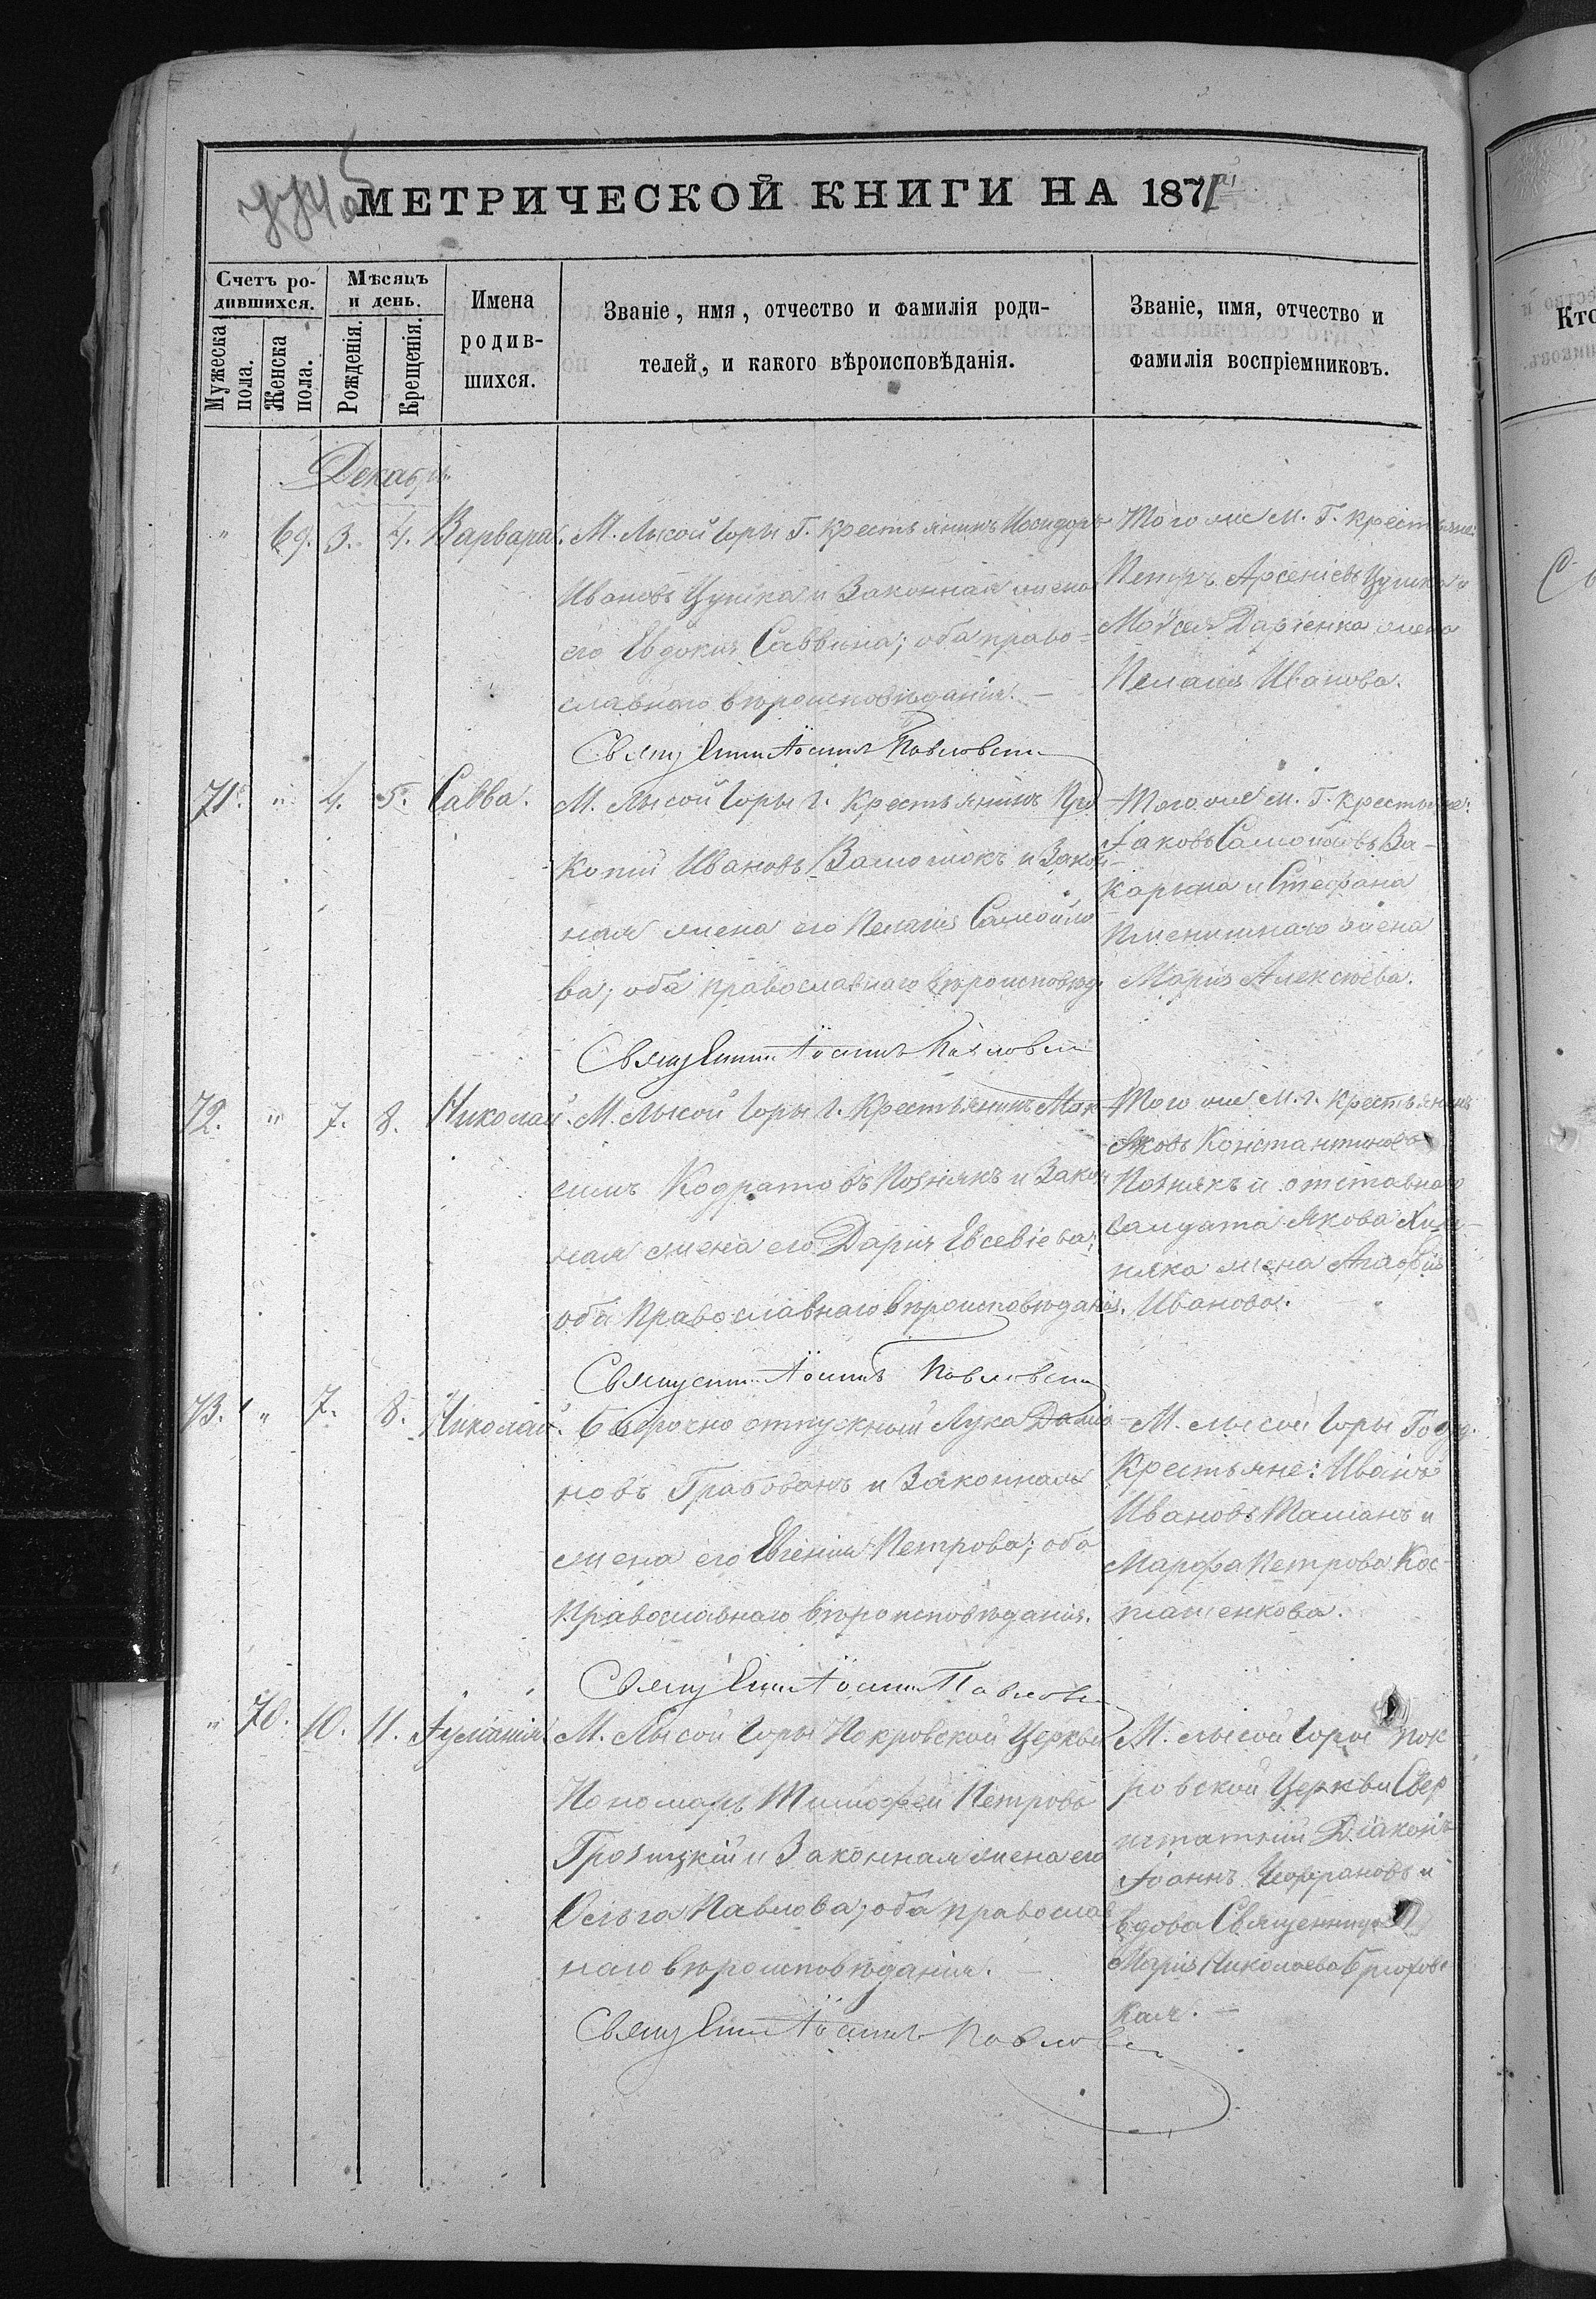 МЕТРИЧЕСКОЙ КНИГИ НА 1871
Счетъ ро-
дившихся.
Мужеска
пола.
Женска
пола.
Мѣсяцъ
и день.
Рожденія.
Крещенія.
Имена
родив-
шихся.
Званіе, имя, отчество и фамилія роди-
телей, и какого вѣроисповѣданія.
Званіе, имя, отчество и
фамилія воспріемниковъ.
Декабрь
" 69. 3. 4. Варвара.
М. Лысой Горы Г. Крестьянинъ Исидоръ
Ивановъ Цушка и Законная жена
его Евдокия Саввина; оба право=
славного вѣроисповѣдания. –
Священникъ Іосифъ Павловский
Того же М. Г. Крестьяне:
Петръ Арсеніевъ Цушка и
Мойсея Даріенка жена
Пелагія Иванова.
71. " 4. 5. Савва.
М. Лысой Горы Г. Крестьянинъ Про
копій Ивановъ и Закон-
ная жена его Пелагія Самойло
ва; оба православнаго вѣроисповѣд.
Священникъ Іосифъ Павловский
Того же М. Г. Крестьяне:
Іаковъ Самойловъ Ва-
карина и Стефана
жена
Марія Алексѣева.
72. " 7. 8. Николай.
М. Лысой Горы Г. Крестьянинъ Мак
симъ Кодратовъ Познякъ и Закон
ная жена его Дария Евсевіева;
оба Православнаго вѣроисповѣданія.
Священникъ Іосифъ Павловский
Того же М. Г. Крестьянинъ
Яковъ Константиновъ
Познякъ и отставнаго
солдата Якова
жена Агафія
Иванова.
73. " 7. 8. Николай.
Безсрочно отпускный Лука Даміа
новъ Грабованъ и Законная
жена его Евгения Петрова; оба
Православнаго вѣроисповѣданія.
Священникъ Іосифъ Павловский
М. Лысой Горы Госуд.
Крестьяне: Иванъ
Ивановъ Таманъ и
Марфа Петрова Кос-
ташенкова.
" 70. 10. 11. Іуліанія.
М. Лысой Горы Покровской Церкви
Пономарь Тимофей Петровъ
Грозицкій и Законная жена его
Ольга Павлова; оба православ
наго вѣроисповѣданія. –
Священникъ Іосифъ Павловский
М. Лысой Горы Пок
ровской Церкви Свер
штатний Діаконъ
Іоаннъ и
вдова Священника
Марія Николаева Брюховец
кая. –
Кто